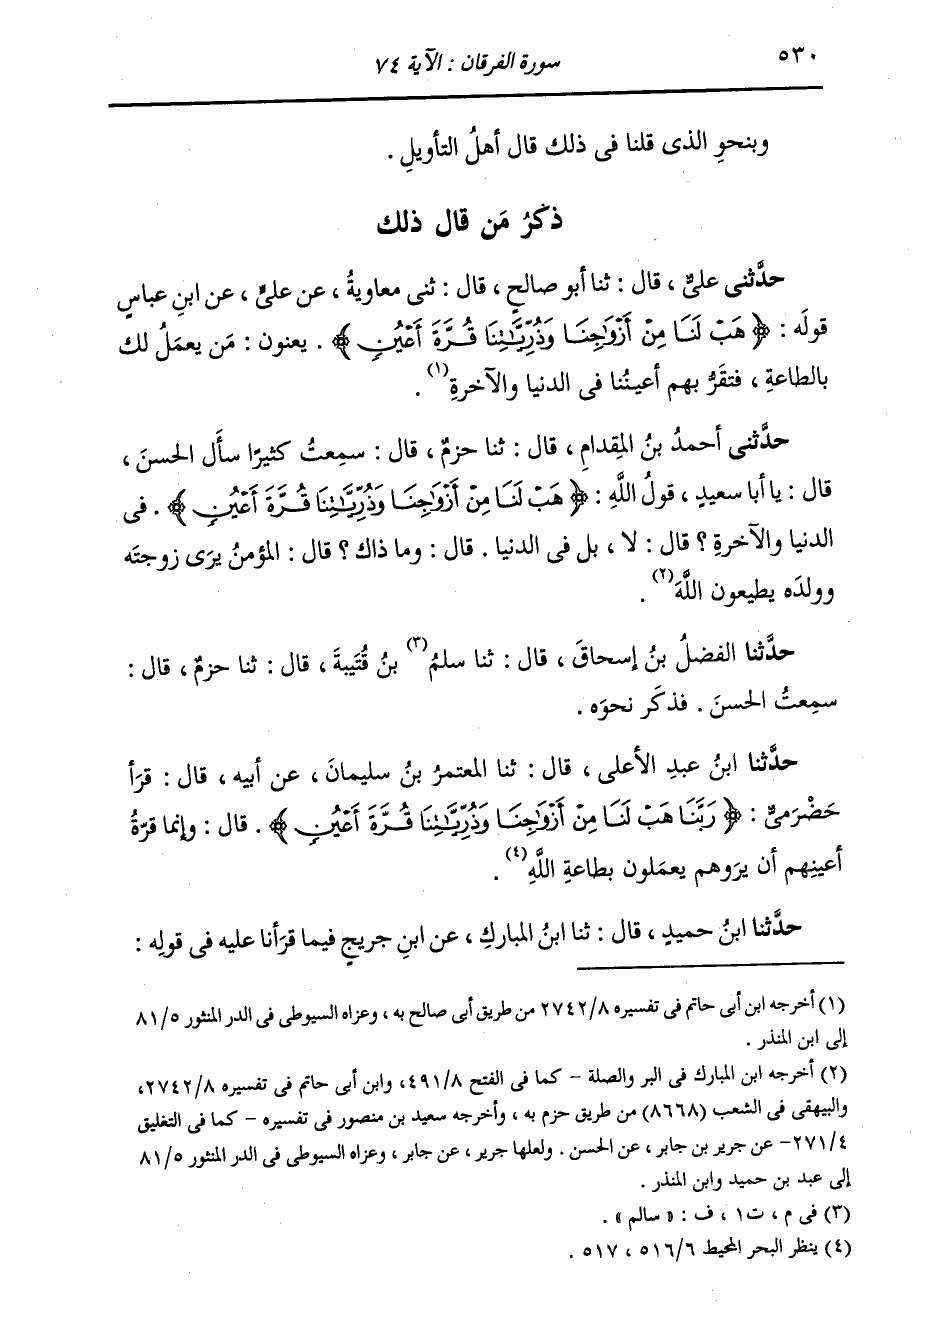 ٥٣٠
سورة الفرقان : الآية ٧٤
وبنحوِ الذى قلنا فى ذلك قال أهلُ التأويلِ .
ذكرُ مَن قال ذلك
حدَّثنى علىٌّ ، قال : ثنا أبو صالحٍ ، قال : ثنى معاويةُ ، عن علىٍّ ، عن ابنِ عباسٍ
قولَه : ﴿ هَبْ لَنَا مِنْ أَزْوَٰجِنَا وَذُرِّيَّٰتِنَا قُرَّةَ أَعْيُنٍ ﴾ . يعنون : مَن يعمَلُ لك
بالطاعةِ ، فتقَرُّ بهم أعينُنا فى الدنيا والآخرةِ(١) .
حدَّثنى أحمدُ بنُ المِقدامِ ، قال : ثنا حزمٌ ، قال : سمِعتُ كثيرًا سأَل الحسنَ ،
قال : يا أبا سعيدٍ ، قولُ اللَّهِ : ﴿ هَبْ لَنَا مِنْ أَزْوَٰجِنَا وَذُرِّيَّٰتِنَا قُرَّةَ أَعْيُنٍ ﴾ . فى
الدنيا والآخرةِ ؟ قال : لا ، بل فى الدنيا . قال : وما ذاك ؟ قال : المؤمنُ يرَى زوجتَه
وولدَه يطيعون اللَّهَ(٢) .
حدَّثنا الفضلُ بنُ إسحاقَ ، قال : ثنا سلمُ(٣) بنُ قُتَيبةَ ، قال : ثنا حزمٌ ، قال :
سمِعتُ الحسنَ . فذكَر نحوَه .
حدَّثنا ابنُ عبدِ الأعلى ، قال : ثنا المعتمرُ بنُ سليمانَ ، عن أبيه ، قال : قرَأ
حَضْرَمىٌّ : ﴿ رَبَّنَا هَبْ لَنَا مِنْ أَزْوَٰجِنَا وَذُرِّيَّٰتِنَا قُرَّةَ أَعْيُنٍ ﴾ . قال : وإنما قرّةُ
أعينِهم أن يرَوهم يعمَلون بطاعةِ اللَّهِ(٤) .
حدَّثنا ابنُ حميدٍ ، قال : ثنا ابنُ المباركِ ، عن ابنِ جريجٍ فيما قرَأنا عليه فى قولِه :
(١) أخرجه ابن أبى حاتم فى تفسيره ٢٧٤٢/٨ من طريق أبى صالح به ، وعزاه السيوطى فى الدر المنثور ٨١/٥
إلى ابن المنذر .
(٢) أخرجه ابن المبارك فى البر والصلة - كما فى الفتح ٤٩١/٨، وابن أبى حاتم فى تفسيره ٢٧٤٢/٨،
والبيهقى فى الشعب (٨٦٦٨) من طريق حزم به ، وأخرجه سعيد بن منصور فى تفسيره - كما فى التغليق
٢٧١/٤- عن جرير بن جابر ، عن الحسن . ولعلها جرير ، عن جابر ، وعزاه السيوطى فى الدر المنثور ٨١/٥
إلى عبد بن حميد وابن المنذر .
(٣) فى م ، ت١ ، ف : « سالم » .
(٤) ينظر البحر المحيط ٥١٦/٦ ، ٥١٧ .